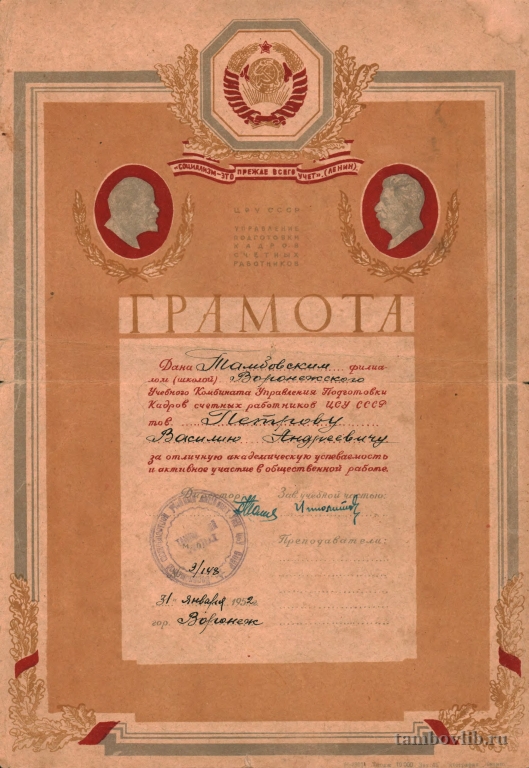 "СОЦИАЛИЗМ-ЭТО ПРЕЖДЕ ВСЕГО УЧЕТ". (ЛЕНИН).
ЦСУ СССР
УПРАВЛЕНИЕ
ПОДГОТОВКИ
КАДРОВ
СЧЕТНЫХ
РАБОТНИКОВ
ГРАМОТА
Дана Тамбовским филиа-
лом (школой) Воронежского
Учебного Комбината Управления Подготовки
Кадров счетных работников ЦСУ СССР
тов. Петрову
Василию Андреевичу
за отличную академическую успеваемость
и активное участие в общественной работе.
Директор: Зав. учебной частью:
Преподаватели:
3/148
31 января 1952 г.
гор. Воронеж
tambovlib.ru